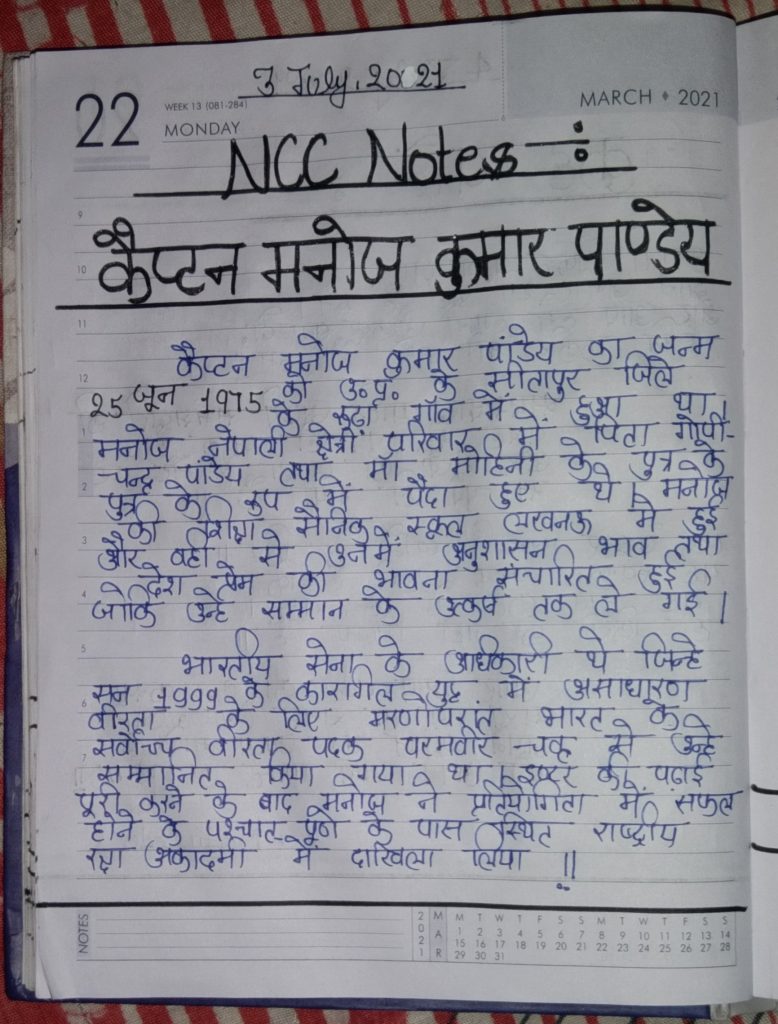 3 July, 2021
22
WEEK 13 (081-284)
MONDAY
MARCH • 2021
NCC Notes :
कैप्टन मनोज कुमार पाण्डेय
9
10
11
12
1
2
3
4
5
6
7
कैप्टन मनोज कुमार पांडेय का जन्म
25 जून 1975 को उ.प्र. के सीतापुर जिले
के रूढ़ा गाँव में हुआ था।
मनोज नेपाली क्षेत्री परिवार में पिता गोपी-
चन्द्र पांडेय तथा माँ मोहिनी के पुत्र के
पुत्र के रूप में पैदा हुए थे। मनोज
की शिक्षा सैनिक स्कूल लखनऊ में हुई
और वहीं से उनमें अनुशासन भाव तथा
देश प्रेम की भावना संचारित हुई
जोकि उन्हे सम्मान के उत्कर्ष तक ले गई।
भारतीय सेना के अधिकारी थे जिन्हे
सन 1999 के कारगिल युद्ध में असाधारण
वीरता के लिए मरणोपरांत भारत के
सर्वोच्च वीरता पदक परमवीर चक्र से उन्हे
सम्मानित किया गया था। इण्टर की पढ़ाई
पूरी करने के बाद मनोज ने प्रतियोगिता में सफल
होने के पश्चात पुणे के पास स्थित राष्ट्रीय
रक्षा अकादमी में दाखिला लिया ॥
NOTES
2021
MAR
M T W T F S S M T W T F S S
1 2 3 4 5 6 7 8 9 10 11 12 13 14
15 16 17 18 19 20 21 22 23 24 25 26 27 28
29 30 31